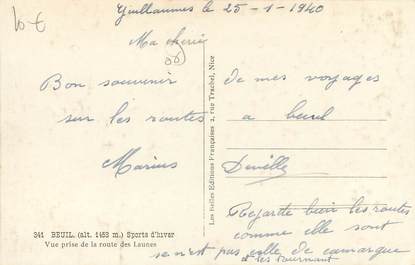 10 €
Guillaumes le 25-1-1940
Ma cherie
Bon souvenir
sur les routes
Marius
de mes voyages
a beuil
Deville
Regarde bien les routes
comme elle sont
se n'est pas celle de camargue
a les tournant
341 BEUIL. (alt. 1452 m.) Sports d'hiver
Vue prise de la route des Launes
Les Belles Editions Françaises 2, rue Trachel, Nice